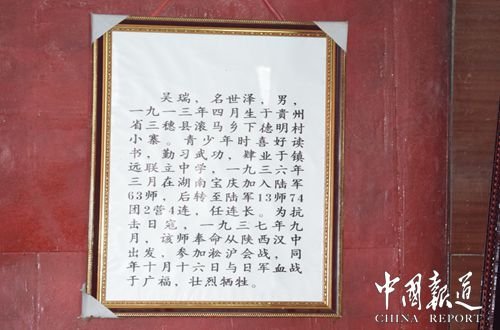 吴瑞，名世泽，男，
一九一三年四月生于贵州
省三穗县滚马乡下德明村
小寨。青少年时喜好读
书，勤习武功，肄业于镇
远联立中学，一九三六年
三月在湖南宝庆加入陆军
63师，后转至陆军13师74
团2营4连，任连长。为抗
击日寇，一九三七年九
月，该师奉命从陕西汉中
出发，参加淞沪会战，同
年十月十六日与日军血战
于广福，壮烈牺牲。
中國報道
CHINA REPORT